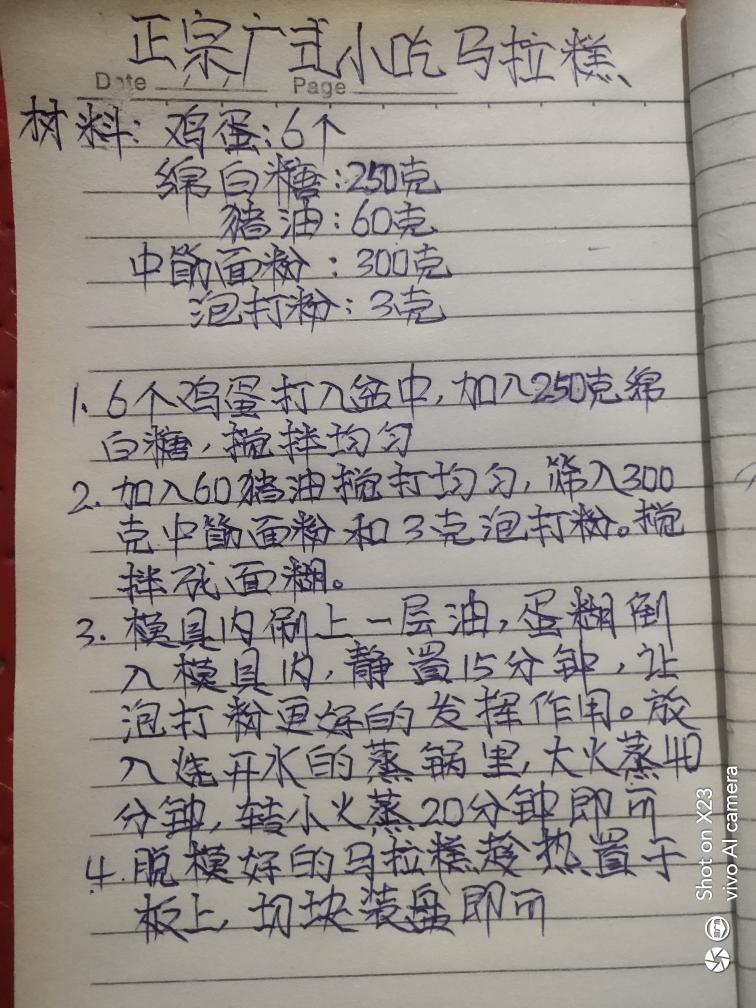 正宗广式小吃马拉糕
Date Page
材料：鸡蛋：6个
绵白糖：250克
猪油：60克
中筋面粉：300克
泡打粉：3克
1. 6个鸡蛋打入盆中，加入250克绵
白糖，搅拌均匀
2. 加入60猪油搅打均匀，筛入300
克中筋面粉和3克泡打粉。搅
拌成面糊。
3. 模具内刷上一层油，蛋糊倒
入模具内，静置15分钟，让
泡打粉更好的发挥作用。放
入烧开水的蒸锅里，大火蒸40
分钟，转小火蒸20分钟即可
4. 脱模好的马拉糕趁热置于
板上，切块装盘即可
Shot on X23
vivo AI camera